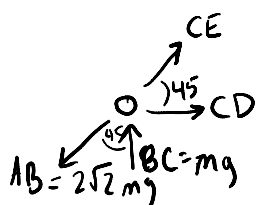 CE
)45
CD
45
AB = 2√2 mg
BC = mg